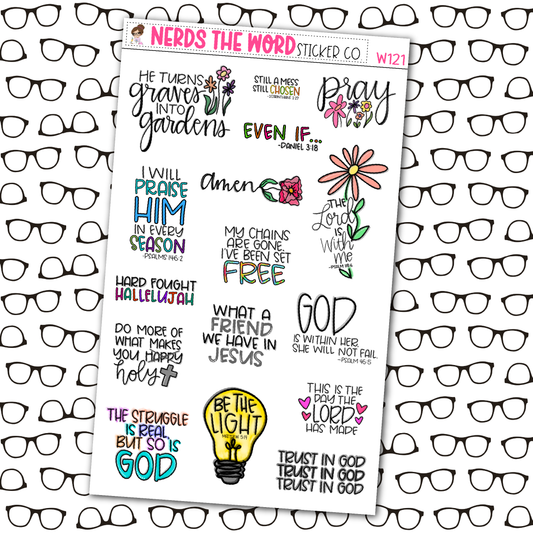 NERDS THE WORD STICKER CO
W121
HE TURNS
graves
INTO
gardens
STILL A MESS
STILL CHOSEN
-CORINTHIANS 1:27
pray
EVEN IF...
-DANIEL 3:18
I WILL
PRAISE
HIM
IN EVERY
SEASON
-PSALMS 146:2
amen
THE
Lord
IS
With
me
MY CHAINS
ARE GONE.
I'VE BEEN SET
FREE
HARD FOUGHT
HALLELUJAH
WHAT A
FRIEND
WE HAVE IN
JESUS
GOD
IS WITHIN HER
SHE WILL NOT FAIL.
-PSALM 46:5
DO MORE OF
WHAT MAKES
YOU HAPPY
holy
THE STRUGGLE
IS REAL
BUT SO IS
GOD
BE THE
LIGHT
THIS IS THE
DAY THE
LORD
HAS MADE
TRUST IN GOD
TRUST IN GOD
TRUST IN GOD